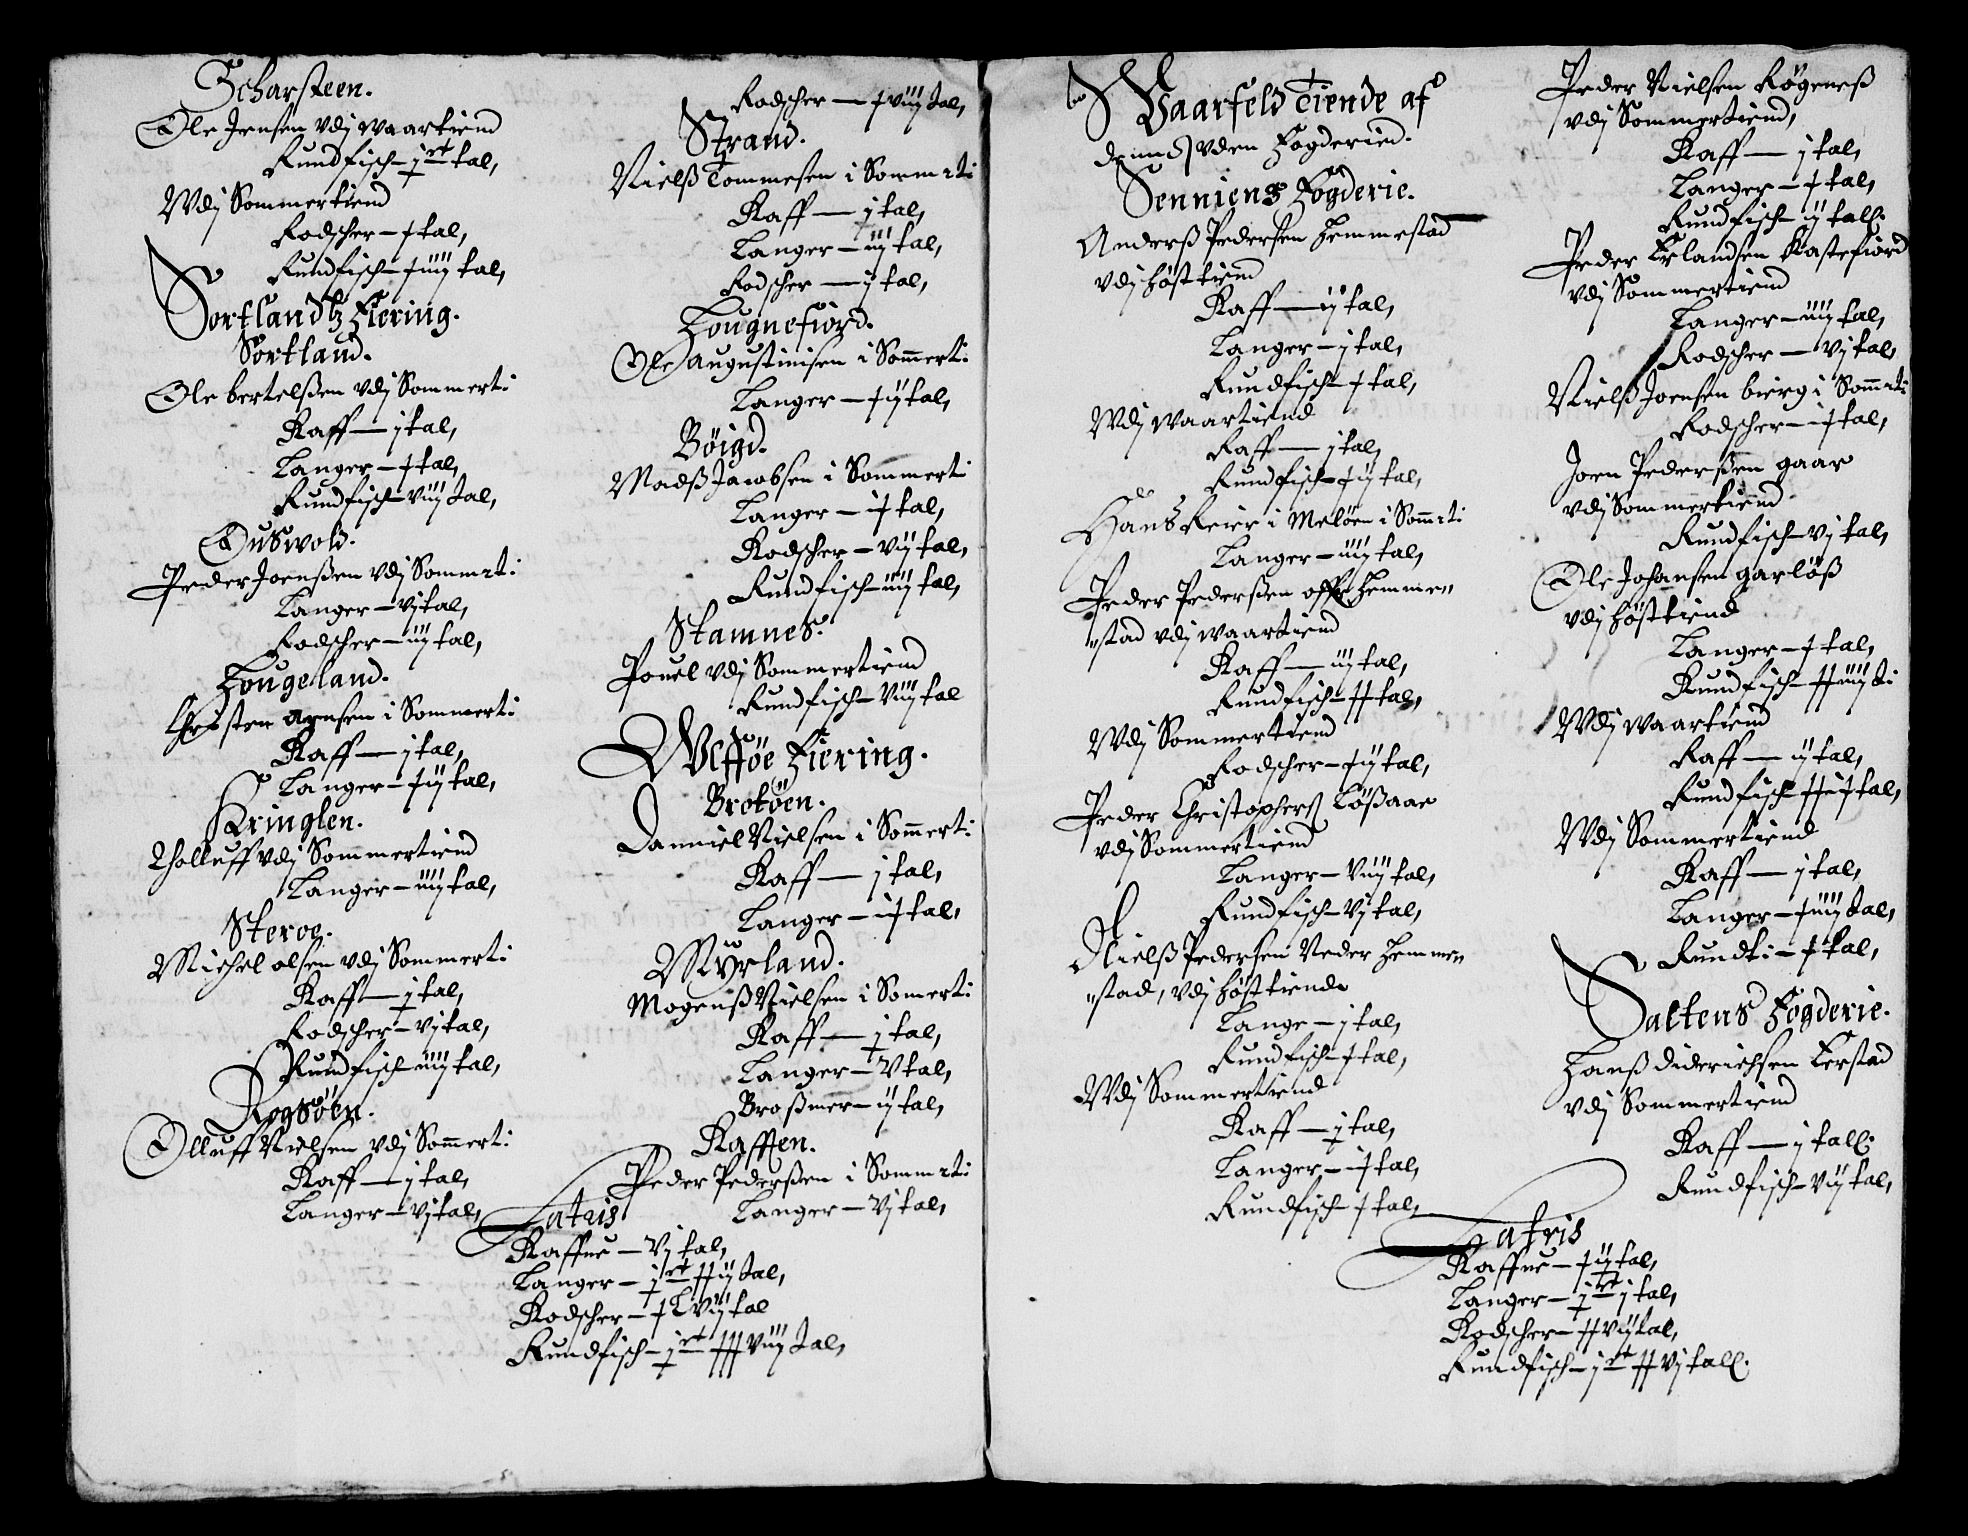 Scharsteen.
Ole Jensen vdj waartiend
Rundfisch – j rt tal,
Wdj Sommertiend
Rodscher – ƚ tal,
Rundfisch – ƚ iiij tal,
Sortlandtz Fiering.
Sortland.
Ole bertelsßen vdj Sommert:
Raff — j tal,
Langer – ƚ tal,
Rundfisch – viij tal,
Guswold.
Peder Joenßen vdj Sommrt:
Langer – vj tal,
Rodscher – iiij tal,
Hougeland.
Christen arnsen i Sommert:
Raff — j tal,
Langer – ƚ ij tal,
Kringlen.
Tholluff vdj Sommertiend
Langer – iiij tal,
Steroe.
Michel olsen vdj Sommert:
Raff — j tal,
Rodscher – vj tal,
Rundfisch – iiij tal,
Rogsöen.
Olluff Nielsen vdj Sommert:
Raff — j tal,
Langer – vj tal,
Rodscher — ƚ viij tal,
Strand.
Nielß Tommesen i Sommrti
Raff — j tal,
Langer – iij tal,
Rodscher — ij tal,
Hougnefiord.
Ole Augustinisen i Sommert:
Langer – ƚ ij tal,
Böigd.
Madß Jacobsen i Sommert
Langer – i ƚ tal,
Rodscher – vij tal,
Rundfisch – iiij tal,
Stamnes.
Pouel vdj Sommertiend
Rundfisch – viij tal
Wlfföe Fiering.
Brotöen.
Danniel Nielsen i Sommert:
Raff — j tal,
Langer – i ƚ tal,
Myrland.
Mogenß Nielsen i Somert:
Raff — j tal,
Langer – V tal,
Broßmer – ij tal,
Rafften.
Peder Pederßen i Sommrt:
Langer – vj tal,
Latris
Raffue – vj tal,
Langer – j rt ƚƚ ij tal,
Rodscher – ƚ L vij tal
Rundfisch – j rt ƚƚƚ viij tal,
Waarfeld Tiende af
vden Fogderied.
Senniens Fogderie.
Anderß Pedersen Hemmestad
vdj hösttiend
Raff — ij tal,
Langer – j tal,
Rundfisch – ƚ tal,
Wdj waartiend
Raff — j tal,
Rundfisch – ƚ ij tal,
Hans Reier i Melöen i Sommrt:
Langer – iiij tal,
Peder Pederßen offre Hemme„
„stad vdj waartiend
Raff — iij tal,
Rundfisch – ƚƚ tal,
Wdj Sommertiend
Rodscher – ƚ ij tal,
Peder Christophers Lößaar
vdj Sommertiend
Langer – viij tal,
Rundfisch – vj tal,
Nielß Pedersen Neder Hemme„
„stad, vdj hösttiende
Lange – j tal,
Rundfisch – ƚ tal,
Wdj Sommertiend
Raff — j tal,
Langer – i ƚ tal,
Rundfisch – ƚ tal,
Peder Nielsen Rögeneß
vdj Sommertiend,
Raff — j tal,
Langer – ƚ tal,
Rundfisch – ij tall.
Peder Erlandsen Kastefiord
vdj Sommertiend
Langer – iiij tal,
Rodscher – vj tal,
Nielß Joensen bierg i Sommrt:
Rodscher – i ƚ tal,
Joen Pederßen gaar
vdj Sommertiend
Rundfisch – vj tal,
Ole Johansen garlöß
vdj hösttiend
Langer – ƚ tal,
Rundfisch – ƚƚ iiij t:
Wdj waartiend
Raff — ij tal,
Rundfisch – ƚƚ i ƚ tal,
Wdj Sommertiend
Raff — j tal,
Langer – ƚ iiij tal,
Rundfi: – ƚ tal,
Saltens Fogderie.
Hanß Diderichsen Kerstad
vdj Sommertiend
Raff — j tall.
Rundfisch – vij tal,
Latris
Raffue – ƚ ij tal,
Langer – j rt j tal,
Rodscher – ƚƚ vij tal,
Rundfisch – j rt ƚƚ vj tall.